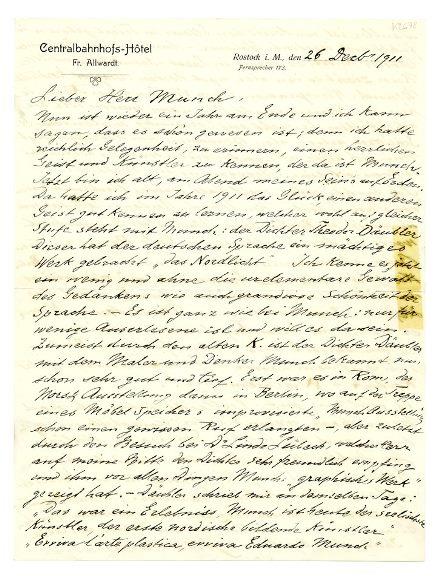 K2678
Centralbahnhofs-Hôtel
Fr. Allwardt.
Rostock i. M., den 26 Decbr 1911
Fernsprecher 173.
Lieber Herr Munch,
Nun ist wieder ein Jahr am Ende und ich kann
sagen, dass es schön gewesen ist, denn ich hatte
reichlich Gelegenheit, zu erinnern, einen herrlichen
Geist und Künstler zu kennen, der da ist Munch.
Jetzt bin ich alt, am Abend meines Seins auf Erden.
Da hatte ich im Jahre 1911 das Glück einen anderen
Geist gut kennen zu lernen, welcher wohl auf gleicher
Stufe steht mit Munch: der Dichter Theodor Däubler
Dieser hat der deutschen Sprache ein mächtiges
Werk gebracht „das Nordlicht“ Ich kenne es jetzt
ein wenig und ahne die urelementare Gewalt
des Gedankens wie auch grandiose Schönheit der
Sprache. — Es ist ganz wie bei Munch: nur für
wenige Auserlesene ist und will es da sein.
Zumeist durch den alten K. ist der Dichter Däubler
mit dem Maler und Denker Munch bekannt nun
schon sehr gut und tief. Erst war es in Rom, der
Norsk Ausstellung dann in Berlin, wo auf der Treppe
eines Möbel Speichers improvisiert Munch Ausstellung
schon einen gewissen Ruf erlangten —, aber zuletzt
durch den Besuch bei Dr Linde Lübeck, welcher Herr
auf meine Bitte den Dichter sehr freundlich empfing
und ihm vor allen Dingen Munchs „graphisches Werk“
gezeigt hat. — Däubler schrieb mir an demselben Tage:
„Das war ein Erlebniss, Munch ist heute der seelischste
Künstler, der erste nordische bildende Künstler“
„Evviva l'arte plastica, evviva Eduardo Munch“